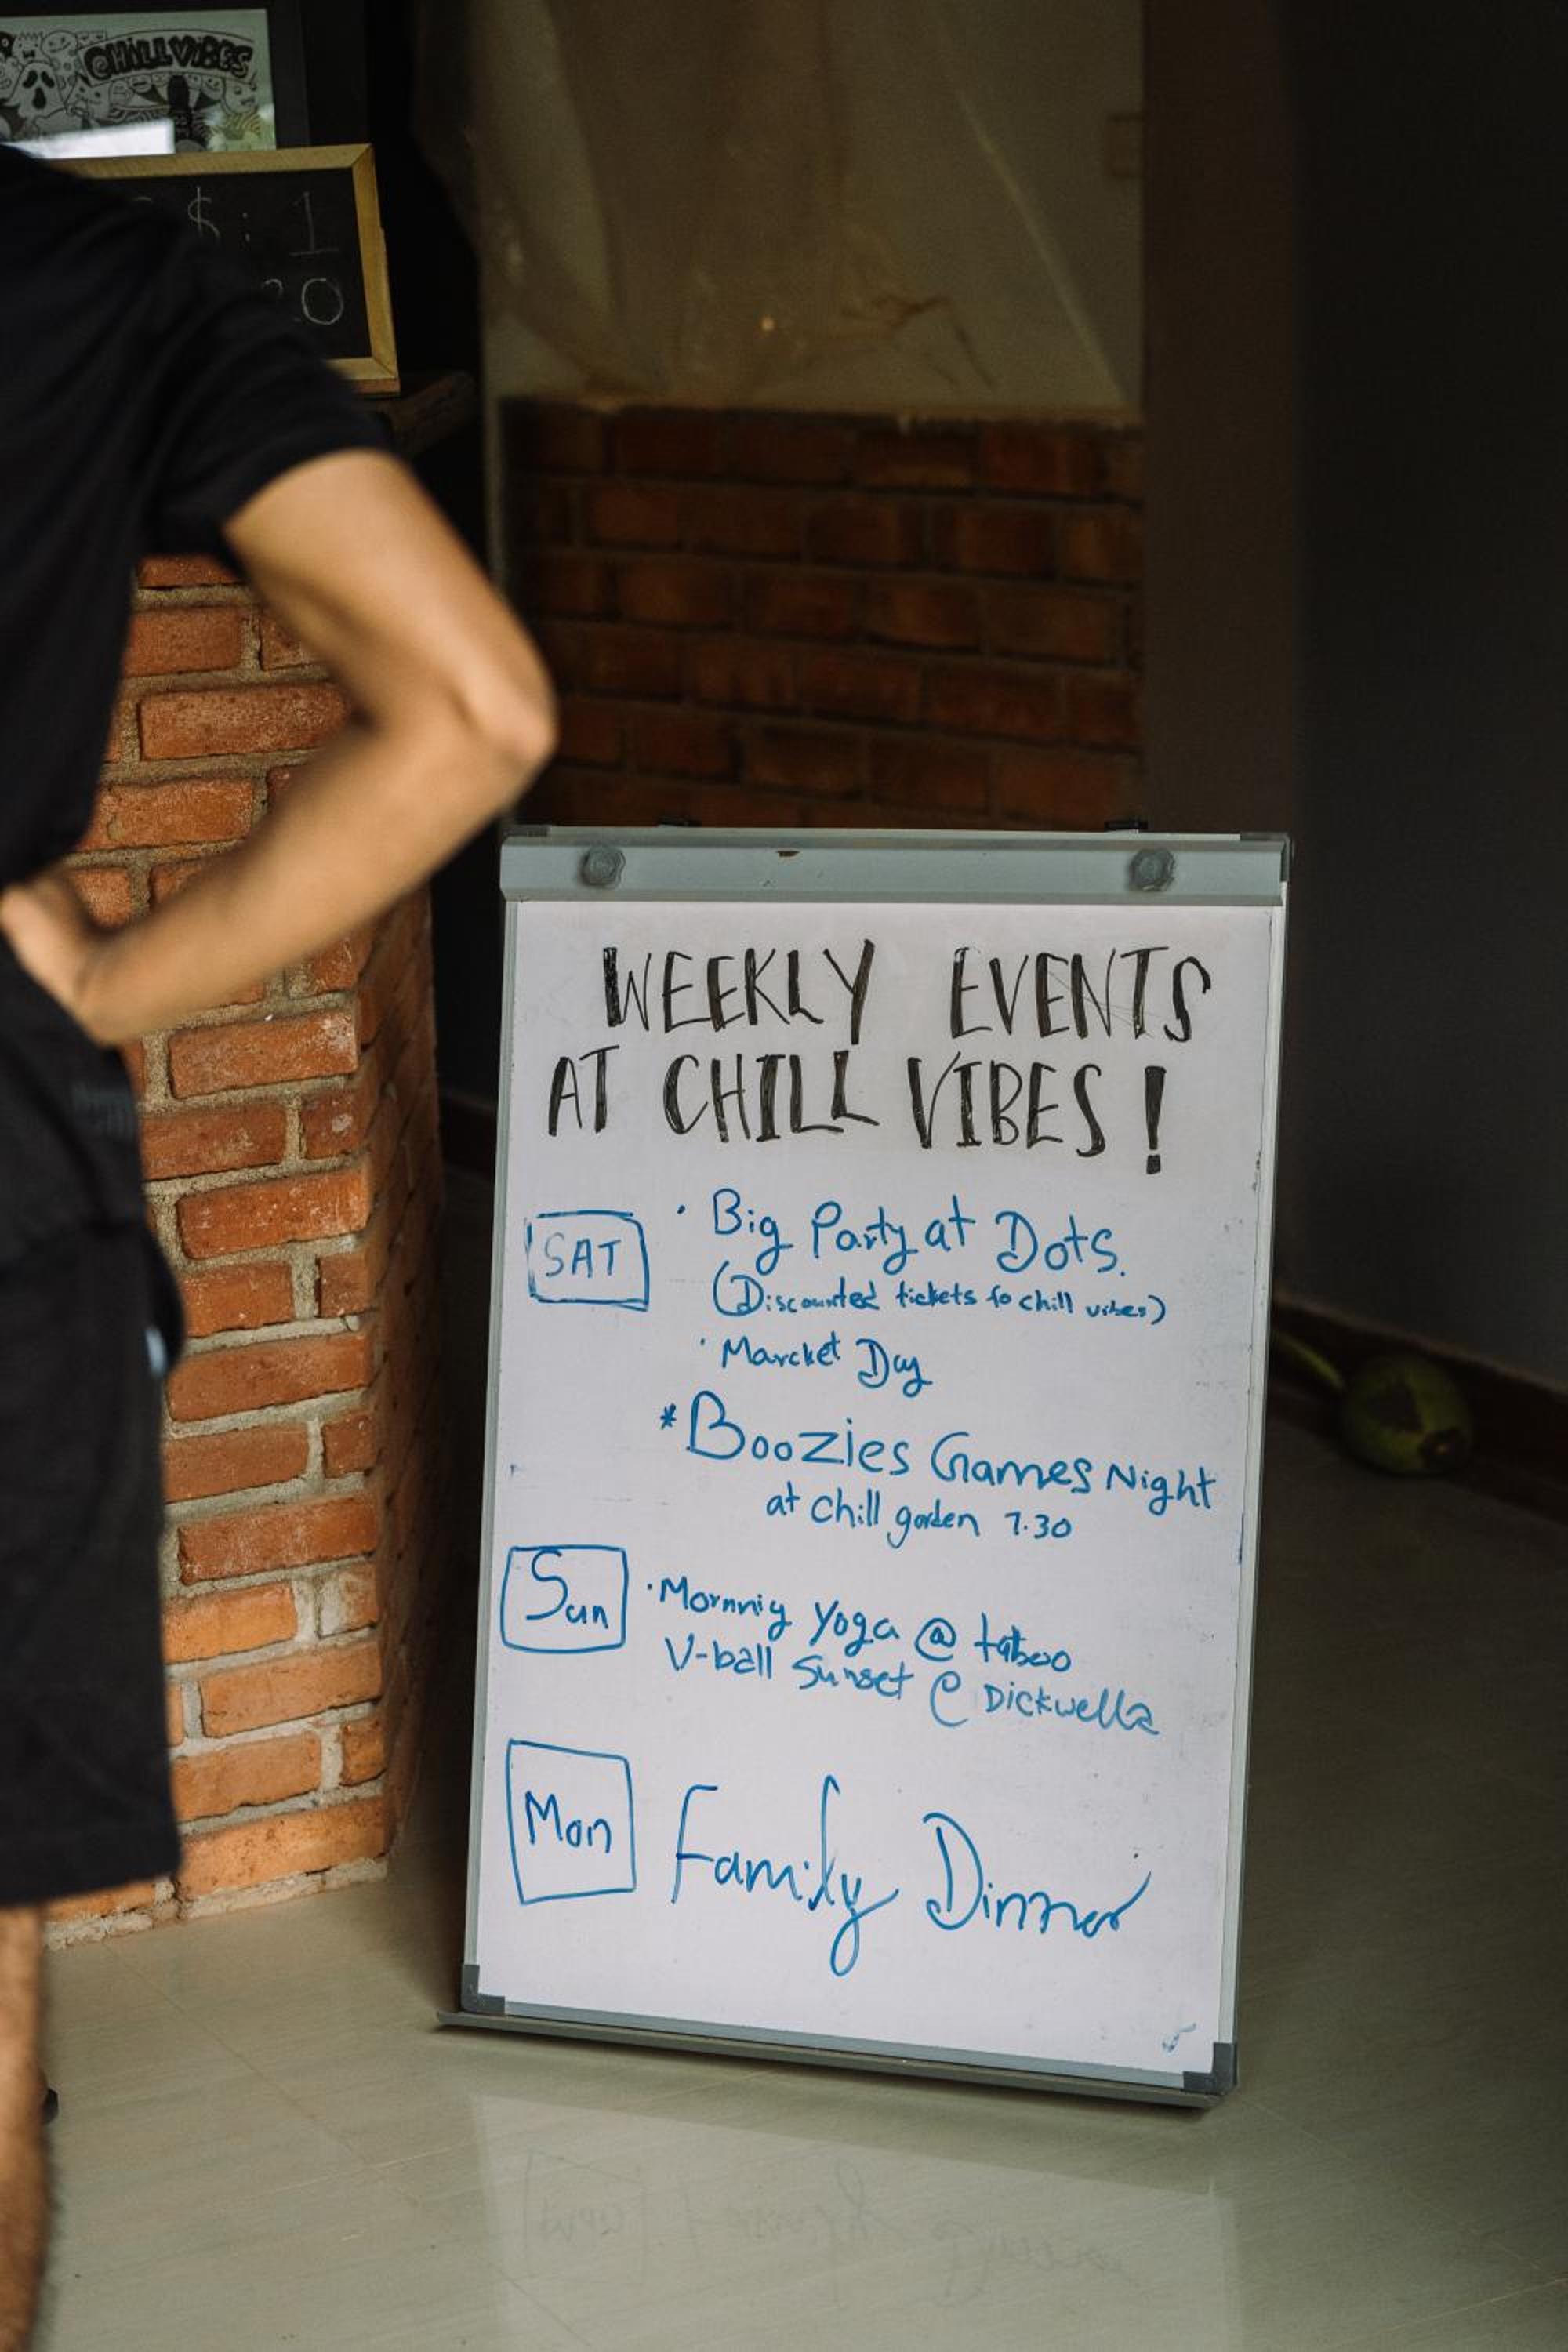 CHILL VIBES
$: 1
20
WEEKLY EVENTS
AT CHILL VIBES!
SAT
· Big Party at Dots.
(Discounted tickets fo chill vibes)
· Marcket Day
*Boozies Games Night
at chill garden 7.30
Sun
· Mornnig Yoga @ taboo
V-ball Sunset @ Dickwella
Mon
Family Dinner